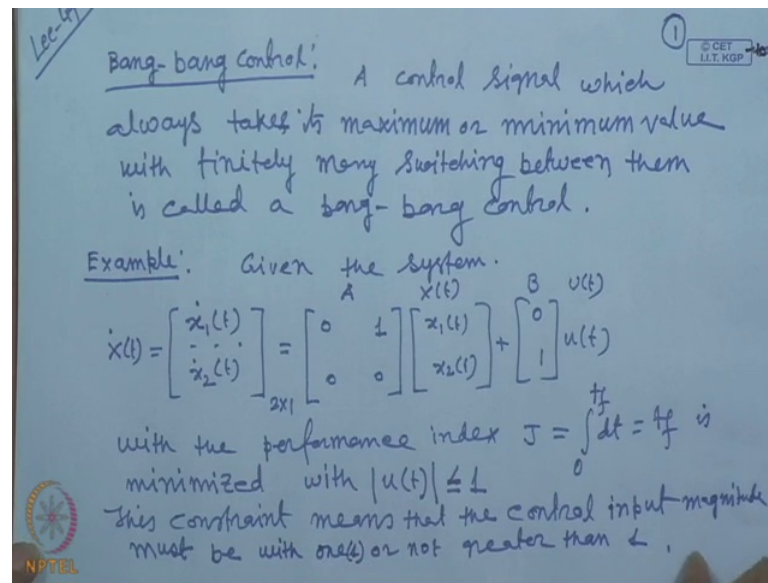 Lec-41
1
© CET
I.I.T. KGP
Bang-bang Control: A control signal which
always takes its maximum or minimum value
with finitely many switching between them
is called a bang-bang control.
Example: Given the system.
A X(t) B U(t)
Ẋ(t) = [ẋ₁(t) ẋ₂(t)]₂ₓ₁ = [0 1 0 0] [x₁(t) x₂(t)] + [0 1] u(t)
with the performance index J = ∫₀^tf dt = tf is
minimized with |u(t)| ≤ 1
This constraint means that the control input magnitude
must be with one(1) or not greater than 1.
NPTEL